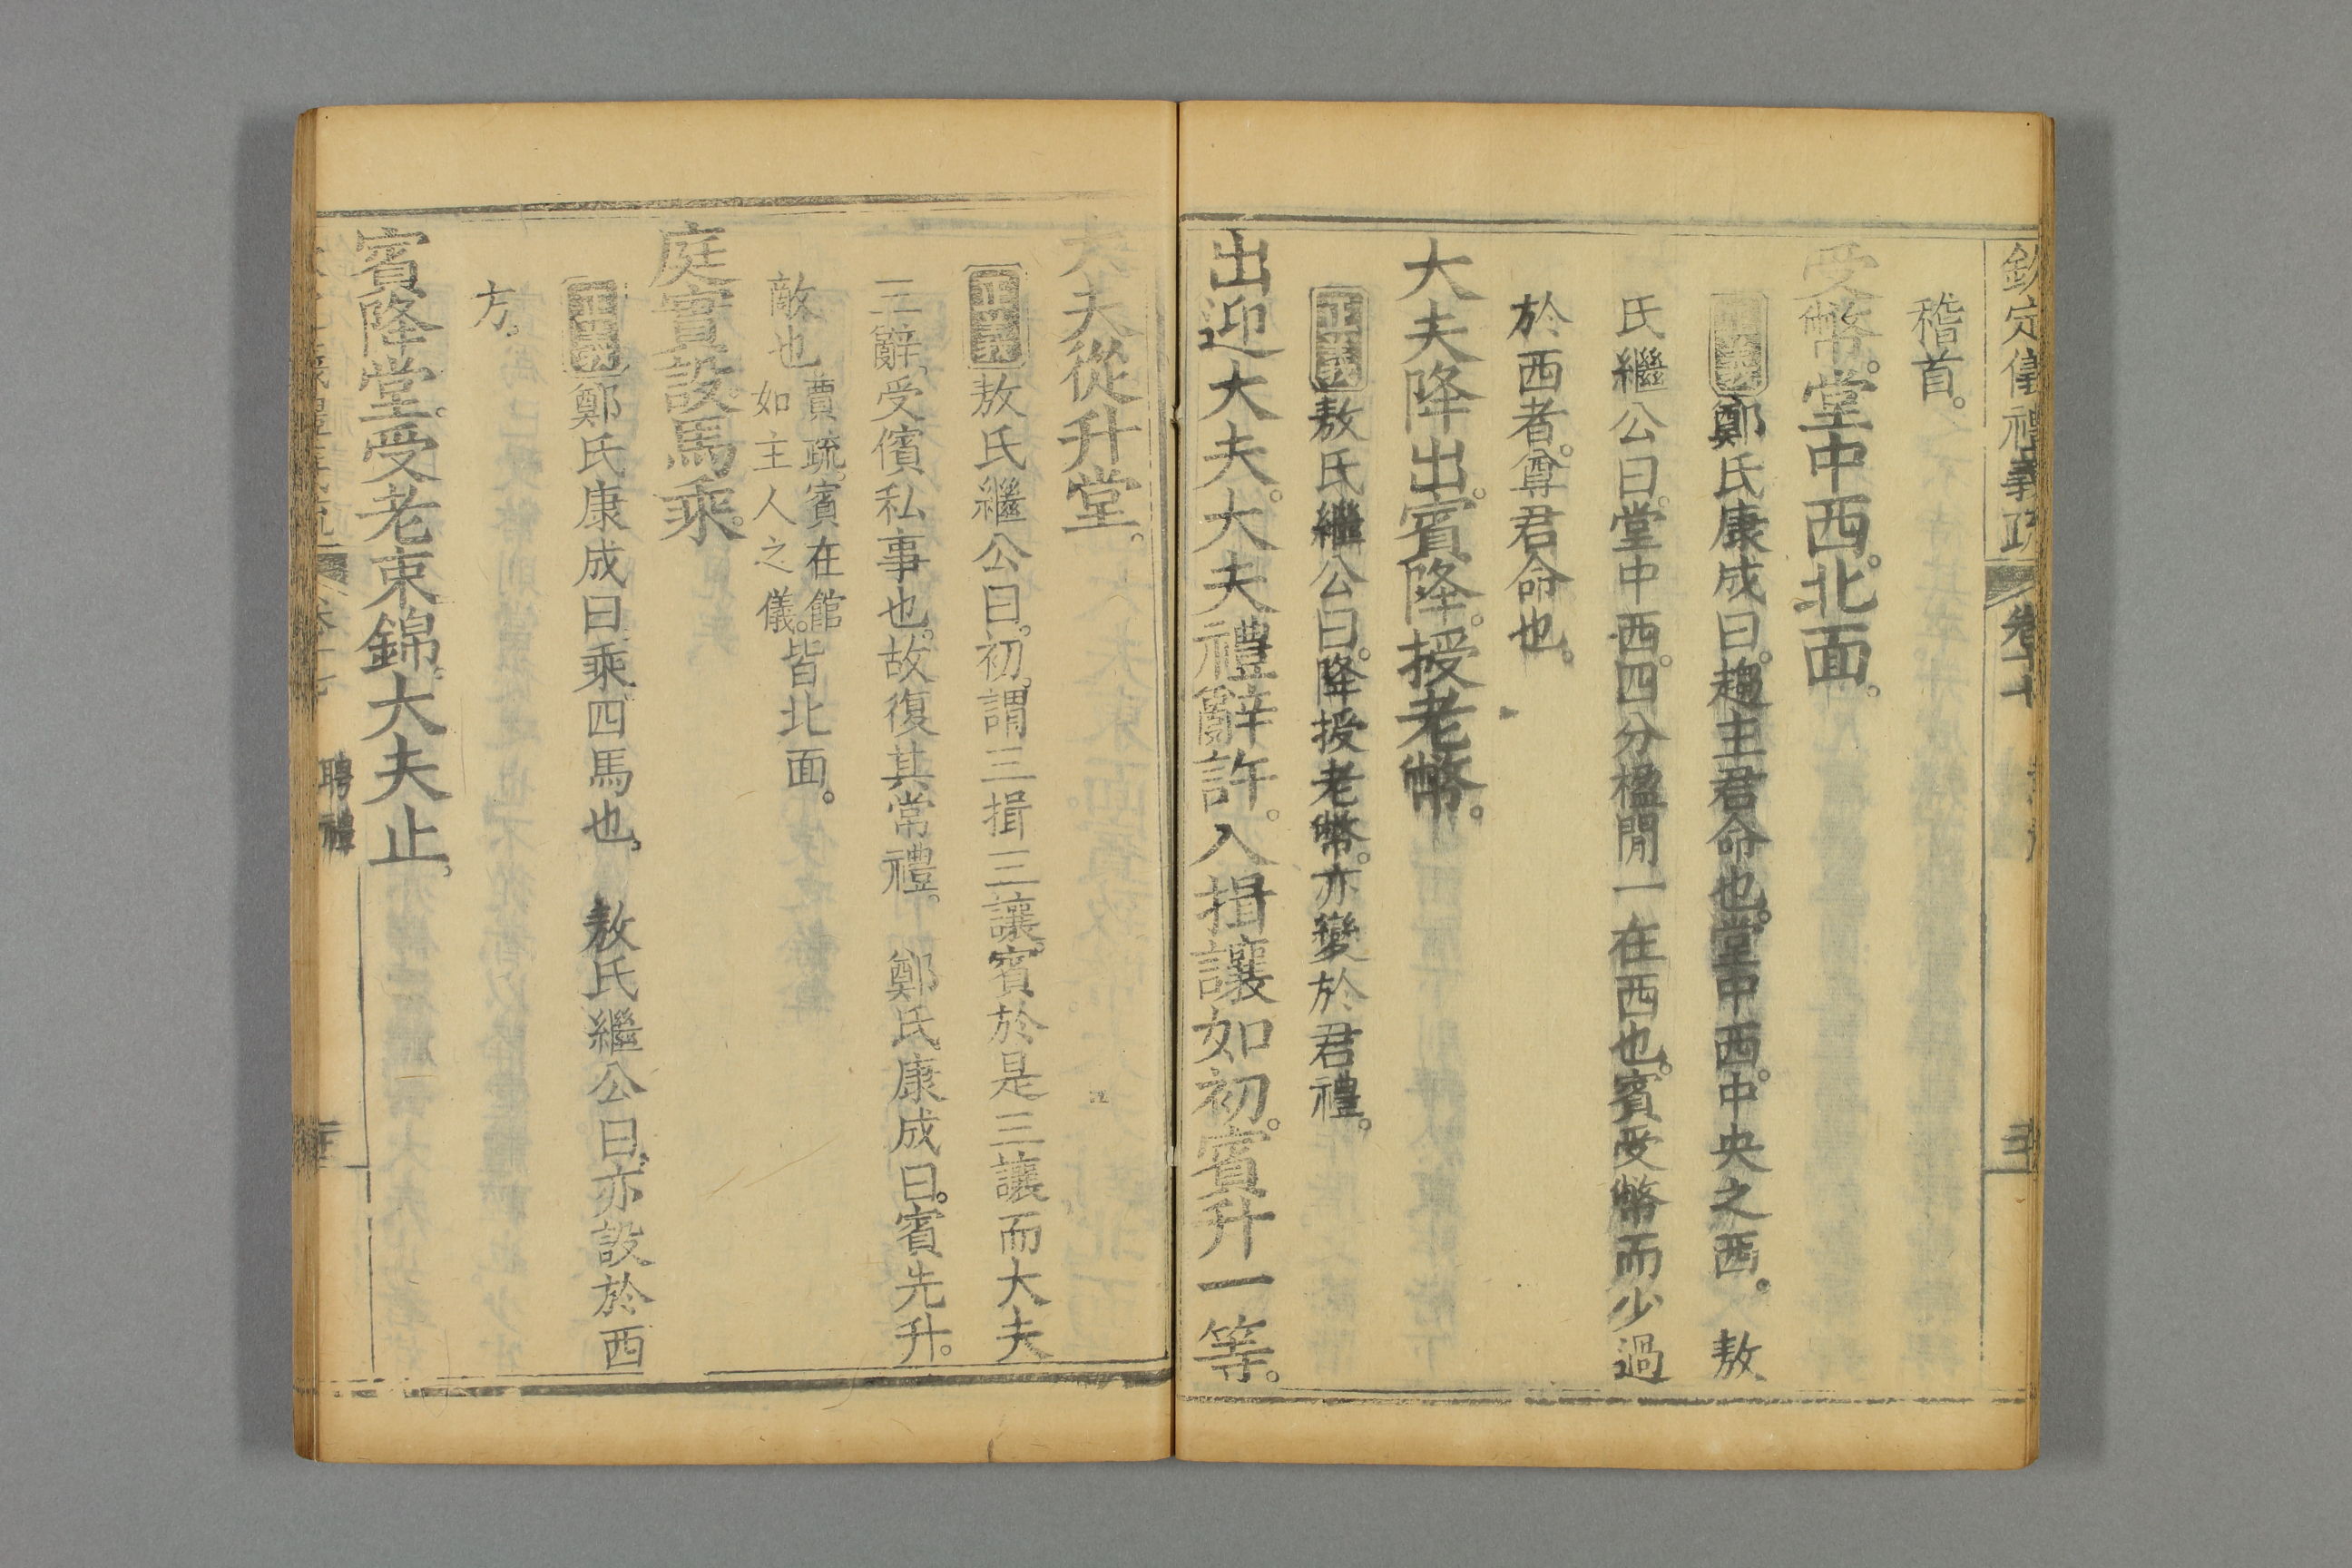 欽定儀禮義疏 卷十七
稽首。
受幣。堂中西。北面。
正義鄭氏康成曰。趨主君命也。堂中西。中央之西。 敖
氏繼公曰。堂中西。四分楹間一在西也。賓受幣而少過
於西者。尊君命也。
大夫降出。賓降。授老幣。
正義敖氏繼公曰。降授老幣。亦變於君禮。
出迎大夫。大夫禮辭許。入揖讓如初。賓升一等。
大夫從升堂。
正義敖氏繼公曰。初。謂三揖三讓。賓於是三讓而大夫
三辭。受儐私事也。故復其常禮。 鄭氏康成曰。賓先升。
敵也賈疏。賓在館如主人之儀。皆北面。
庭實設。馬乘。
正義鄭氏康成曰乘四馬也。 敖氏繼公曰。亦設於西
方。
賓降堂。受老束錦。大夫止。
聘禮